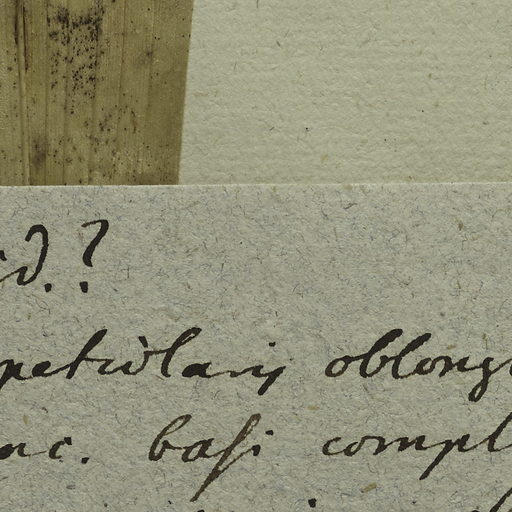 id.?
petiolaris oblong
nc. basi compl